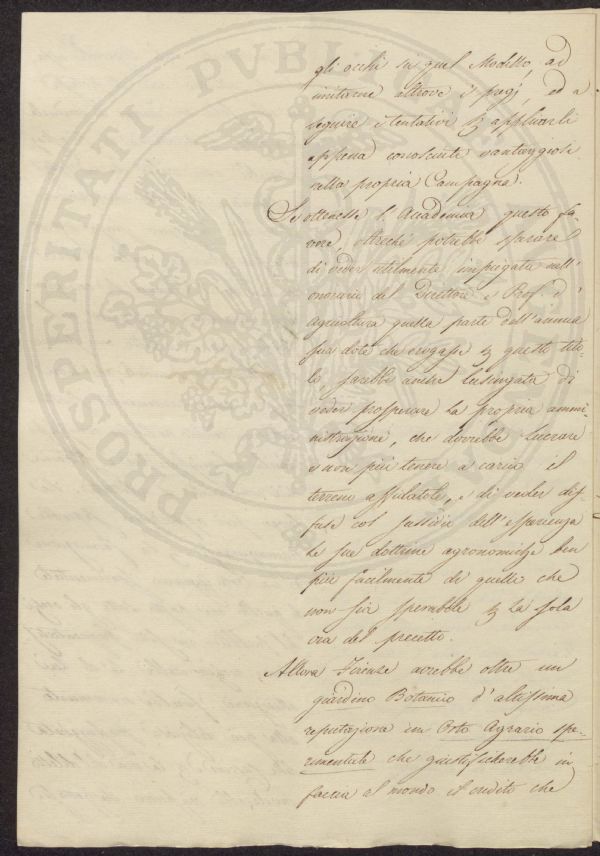 gli occhi su quel Modello, ad
imitarne altrove i pregj, ed a
seguire i tentativi
appena conosciuti vantaggiosi
nella propria Campagna.
Se ottenesse l'Accademia questo fa-
vore, oltrechè potrebbe sperare
di veder utilmente impiegata nell'
onorario del Direttore e Prof. d'
Agricoltura quella parte dell'annua
sua dote che erogasse questo tito-
lo, sarebbe anche lusingata di
veder prosperare la propria ammi-
nistrazione, che dovrebbe lucrare
e non più tenere a carico il
terreno affidatole, e di veder dif-
fuse col sussidio dell'esperienza
le sue dottrine agronomiche ben
più facilmente di quello che
non sia sperabile la sola
via del precetto.
Allora Firenze avrebbe oltre un
giardino Botanico d'altissima
reputazione un Orto Agrario spe-
rimentale che giustificherebbe in
faccia al mondo il credito che
PROSPERITATI PVBLICAE